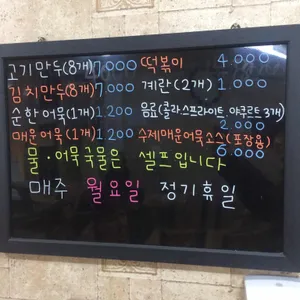 고기만두(8개) 7,000
김치만두(8개) 7,000
순한어묵(1개) 1,200
매운어묵(1개) 1,200
떡볶이 4,000
계란(2개) 1,000
음료(콜라.스프라이트.야쿠르트3개)
2,000
수제매운어묵소스(포장용)
6,000
물·어묵국물은 셀프입니다
매주 월요일 정기휴일